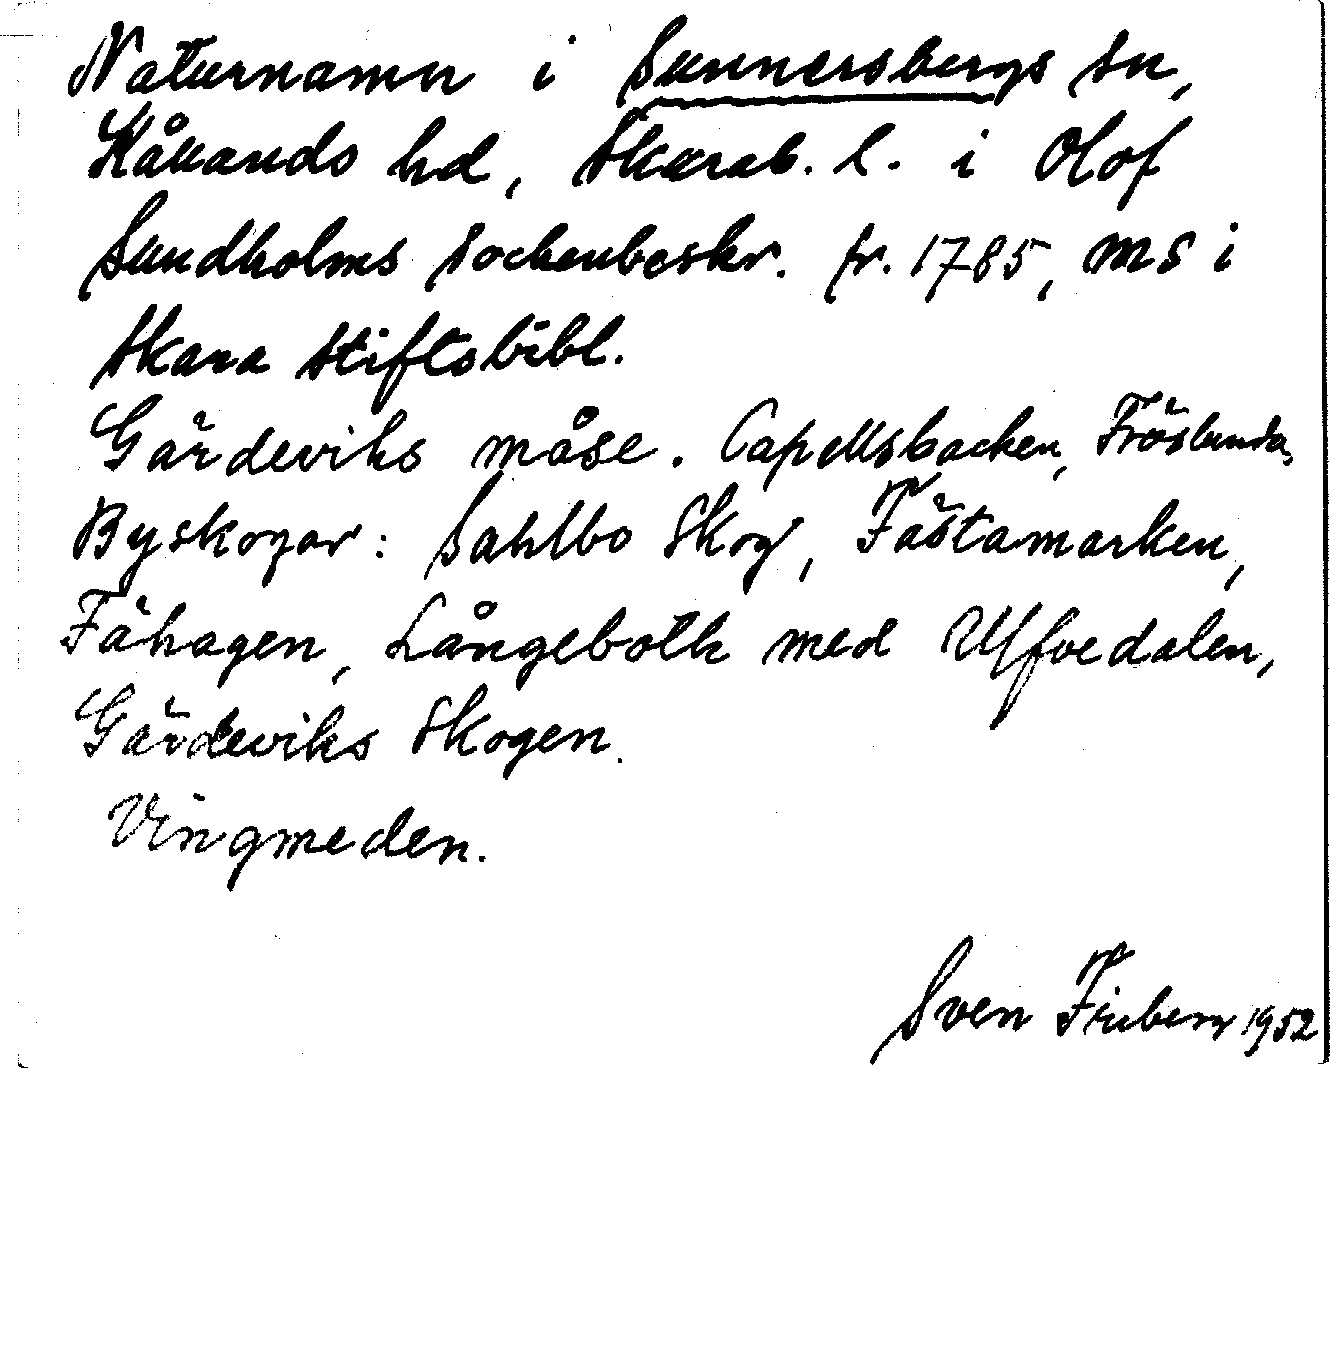 Naturnamn i Sunnersbergs sn,
Kåkands hd, Skarab. l. i Olof
Sundholms sockenbeskr. fr. 1785, ms i
Skara stiftsbibl.
Gärdeviks måse. Capellsbacken, Fröslunda,
Byskogar: Sahlbo Skog, Fästamarken,
Fähagen, Långebolh med Ulfvedalen,
Gärdeviks Skogen.
Vingmeden.
Sven 1952